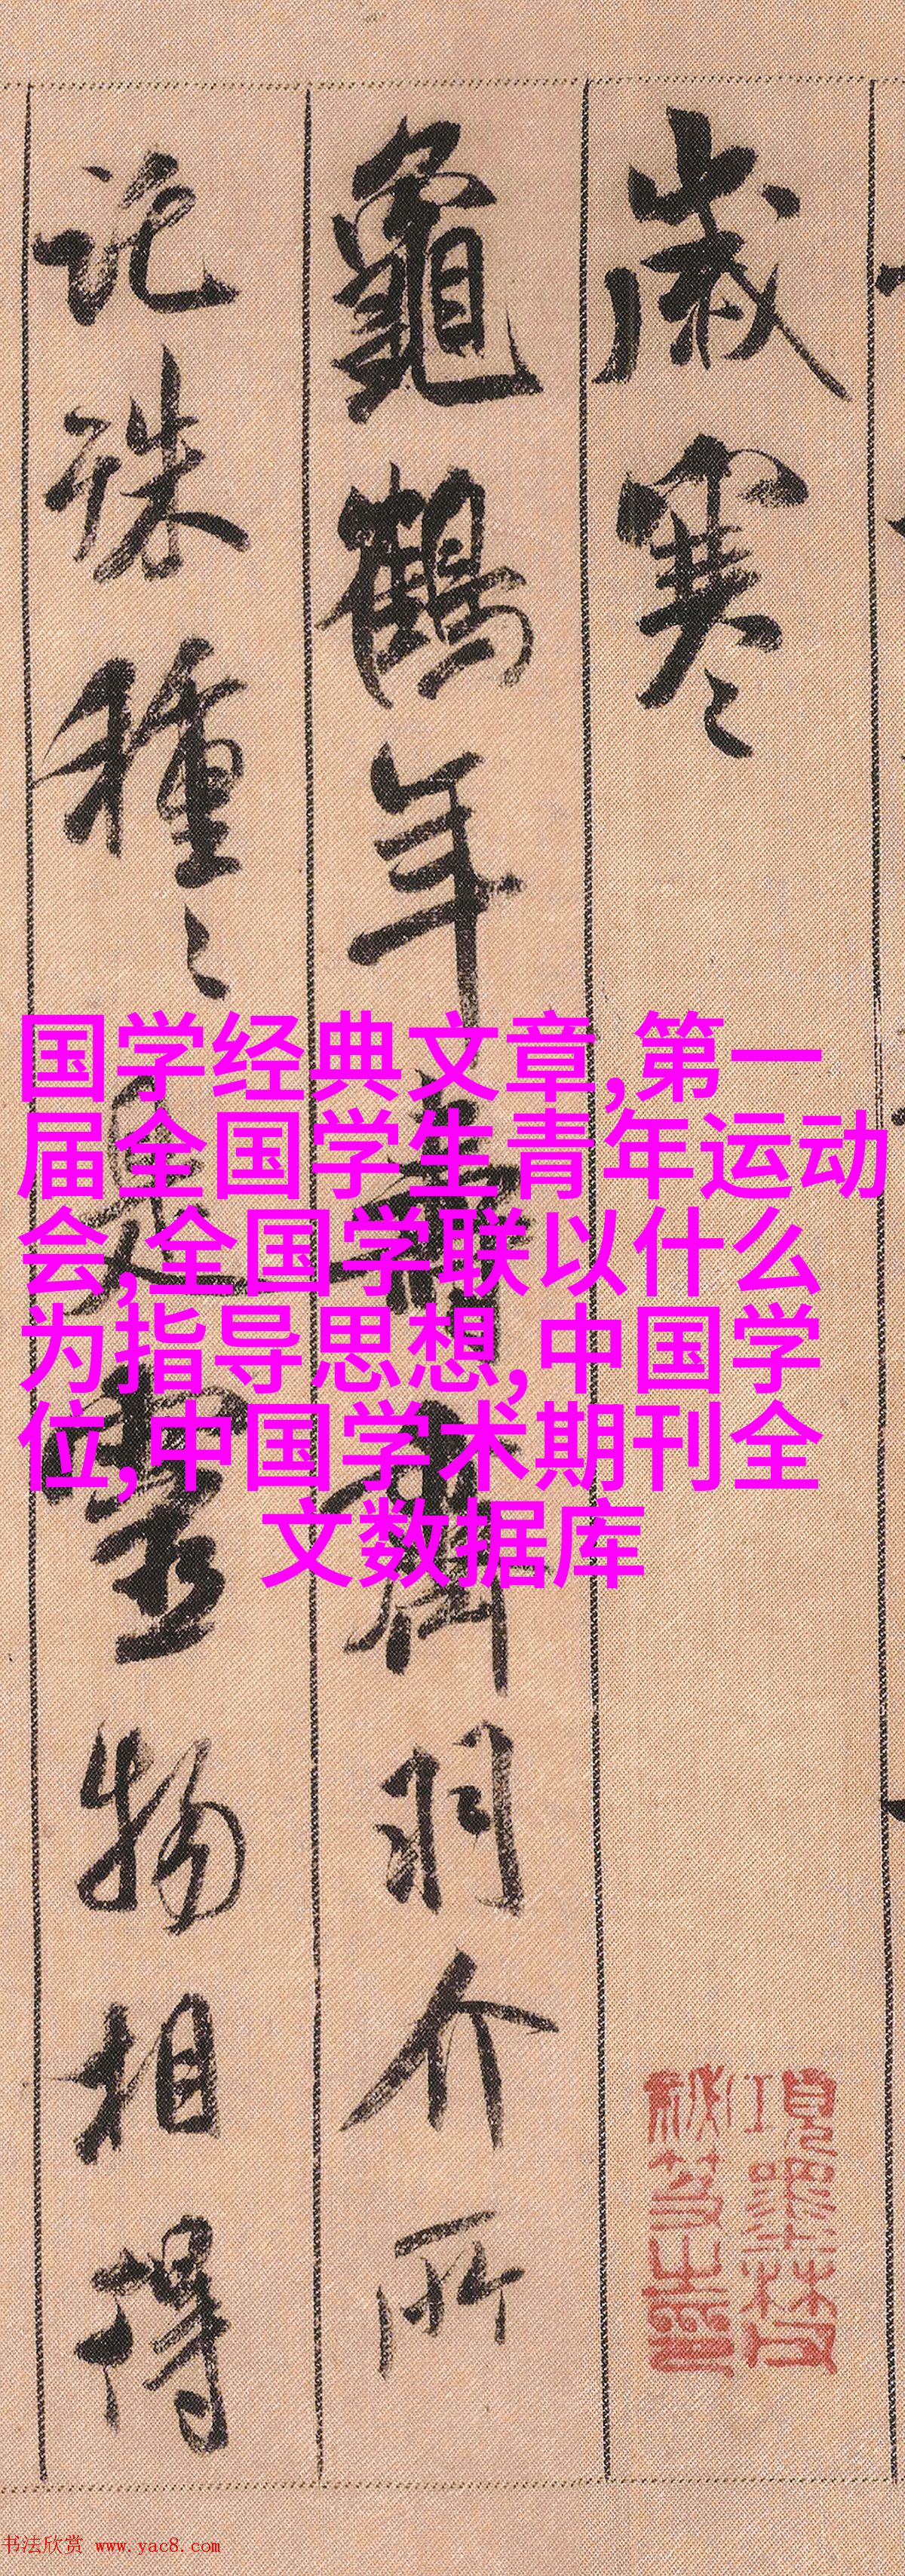 歲寒
龜鶴年壽齊羽介所
託殊種〻是靈物相得
国学经典文章,第一
届全国学生青年运动
会,全国学联以什么
为指导思想,中国学
位,中国学术期刊全
文数据库
項墨林父
祕笈之印
书法欣赏 www.yac8.com